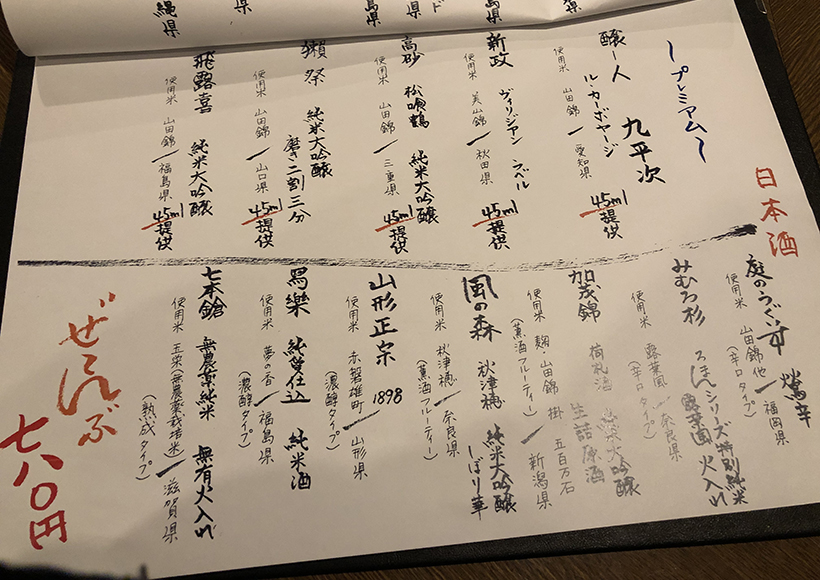 日本酒
〜プレミアム〜
醸し人 九平次
ル・カーボヤージ
使用米 山田錦/愛知県
45ml提供
新政 ヴィリジアン ラベル
使用米 美山錦/秋田県
45ml提供
高砂 松喰鶴 純米大吟醸
使用米 山田錦/三重県
45ml提供
獺祭 純米大吟醸
磨き二割三分
使用米 山田錦/山口県
45ml提供
飛露喜 純米大吟醸
使用米 山田錦/福島県
45ml提供
庭のうぐいす 鶯辛
使用米 山田錦他/福岡県
(辛口タイプ)
みむろ杉 ろまんシリーズ特別純米
露葉風 火入れ
使用米 露葉風/奈良県
(辛口タイプ)
加茂錦 荷札酒 純米大吟醸
生詰原酒
使用米 麹・山田錦 掛 五百万石
(薫酒フルーティー)/新潟県
風の森 秋津穂 純米大吟醸
しぼり華
使用米 秋津穂/奈良県
(薫酒フルーティー)
山形正宗 1898
使用米 赤磐雄町/山形県
(濃醇タイプ)
寫樂 純愛仕込 純米酒
使用米 夢の香/福島県
(濃醇タイプ)
七本鎗 無農薬純米 無有火入れ
使用米 玉栄(無農薬栽培米)/滋賀県
(熟成タイプ)
"ぜんぶ
七八〇円